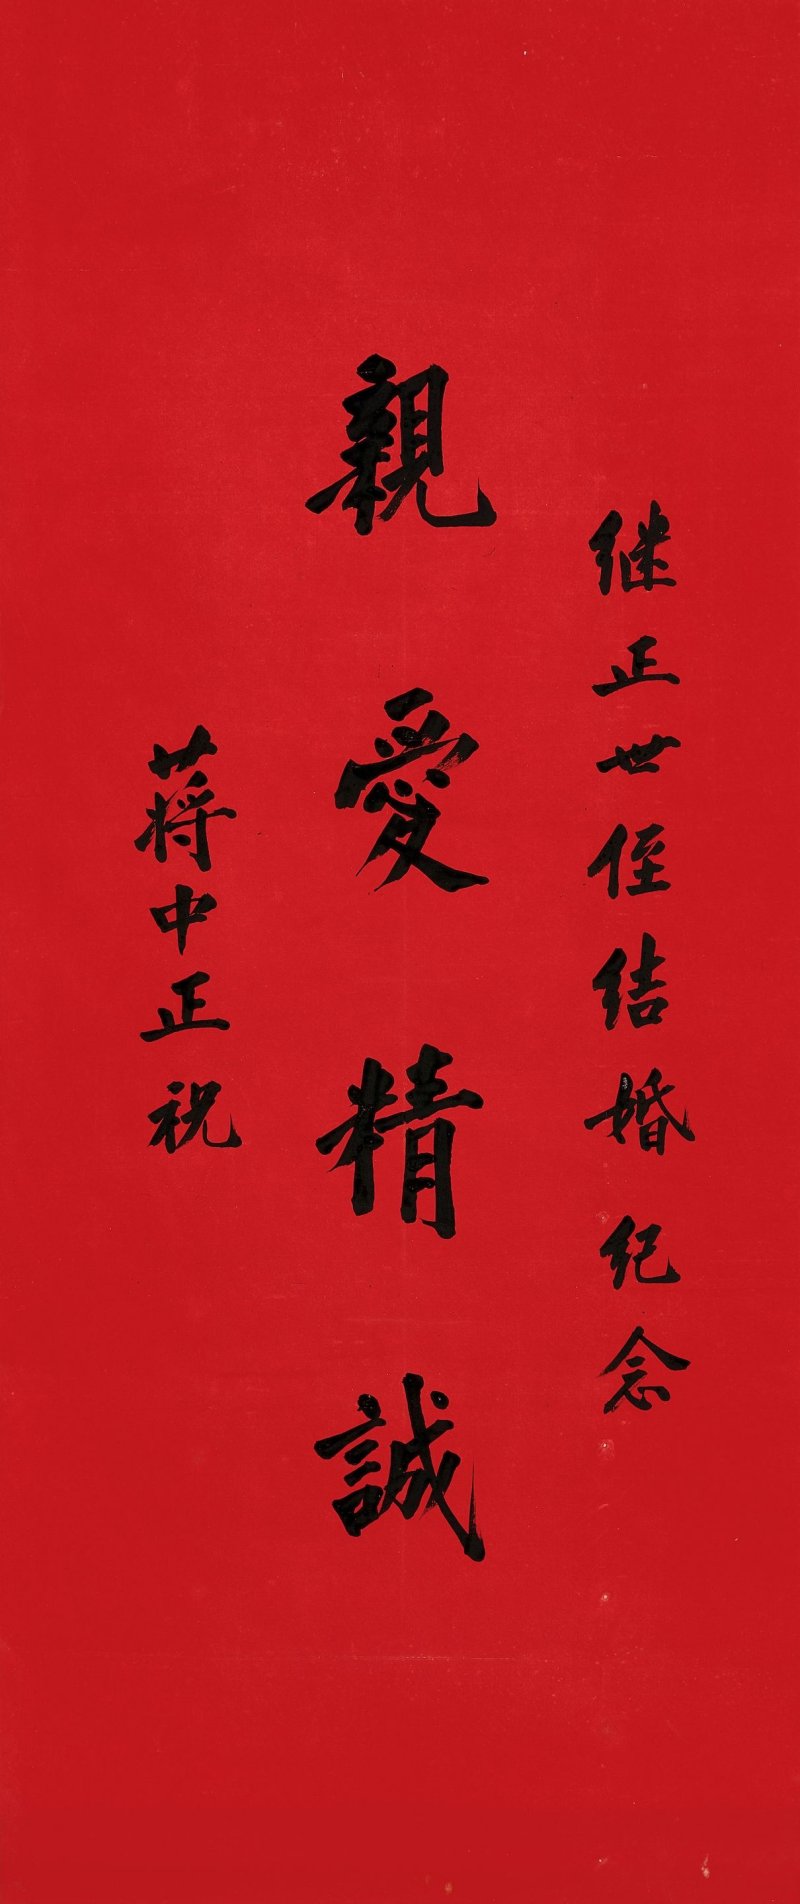 继正世侄结婚纪念
親愛精誠
蒋中正祝